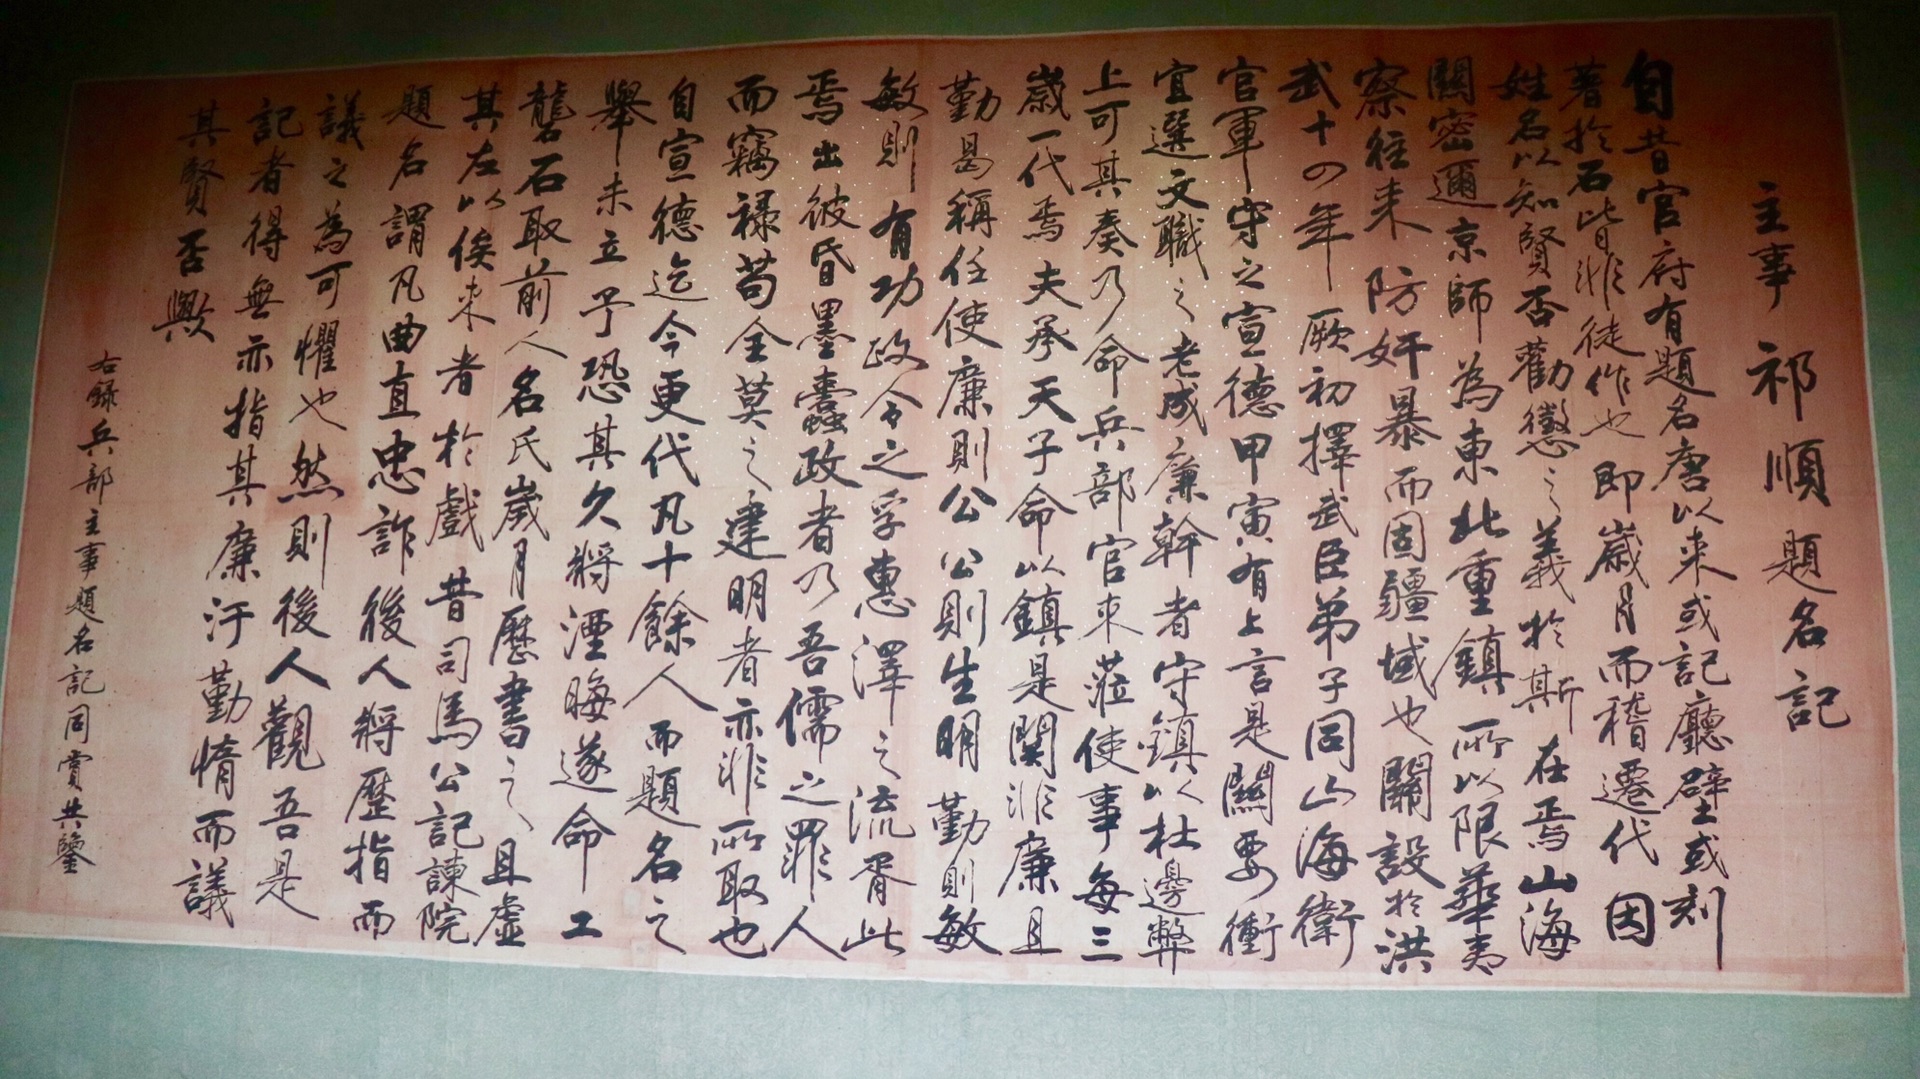 主事祁順題名記
自昔官府有題名唐以来或記廳壁或刻
著於石皆非徒作也即歲月而稽遷代因
姓名以知賢否勸懲之義於斯在焉山海
關密邇京師為東北重鎮所以限華夷
察往来防奸暴而固疆域也關設於洪
武十四年厥初擇武臣弟子同山海衛
官軍守之宣德甲寅有上言是關要衝
宜選文職之老成廉幹者守鎮以杜邊弊
上可其奏乃命兵部官来蒞使事每三
歲一代焉夫承天子命以鎮是関非廉且
勤曷稱任使廉則公公則生明勤則敏
敏則有功政令之孚惠澤之流胥此
焉出彼昏墨蠹政者乃吾儒之罪人
而竊祿苟全莫之建明者亦非所取也
自宣德迄今更代凡十餘人而題名之
舉未立予恐其久將湮晦遂命工
礱石取前人名氏歲月歷書之且虛
其左以俟来者於戲昔司馬公記諫院
題名謂凡曲直忠詐後人將歷指而
議之為可懼也然則後人觀吾是
記者得無亦指其廉汙勤惰而議
其賢否歟
右錄兵部主事題名記同賞共鑒